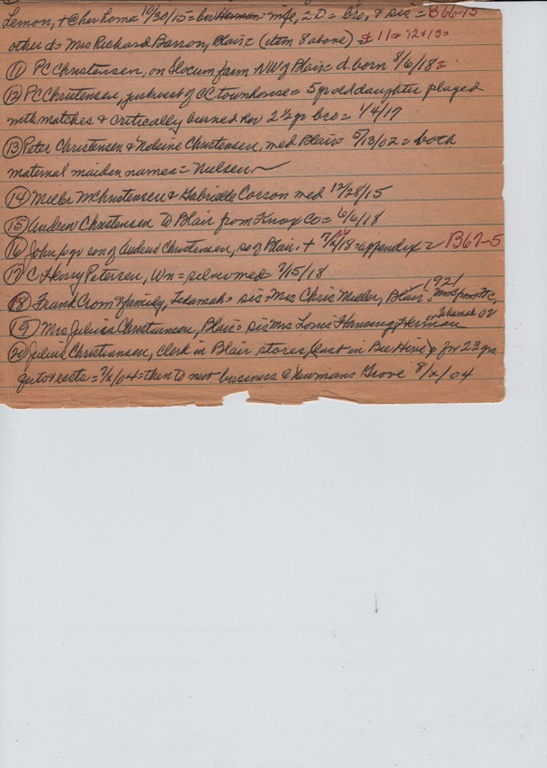 Lemon, + @ her home 10/30/15 = wife, 2 D = bro, & sis = B66-15
other d = Mrs Richard Barron, Blair = (item 8 above) # 11 & 12 & 13 =
(11) PC Christensen, on Slocum farm NW of Blair = d. born 8/6/18 =
(12) PC Christensen, just west of CC townhouse = 5 yr old daughter played
with matches & critically burned her 2 1/2 yr bro = 1/4/17
(13) Peter Christensen & Christensen, med Blair 5/13/02 = both
maternal maiden names = Nielsen
(14) W Christensen & Gabrielle Corson med 12/28/15
(15) Andrew Christensen to Blair from Knox Co = 6/6/18
(16) John, yr son of Andrew Christensen, so of Blair, + 7/x/18 = appendix = B67-5
(17) C Henry Petersen, Wn = 7/15/18
(18) Frank Crom & family, Tekamah = sis = Mrs Chris Miller, Blair 1921
(19) Mrs Julius Christiansen, Blair = sis Mrs Louis Hansen, Herman or Tekamah or
(20) Julius Christiansen, clerk in Blair stores, (last in Bee Hive) for 23 yrs
quits & rests = 7/x/04 = then to new business @ Newmans Grove 8/x/04